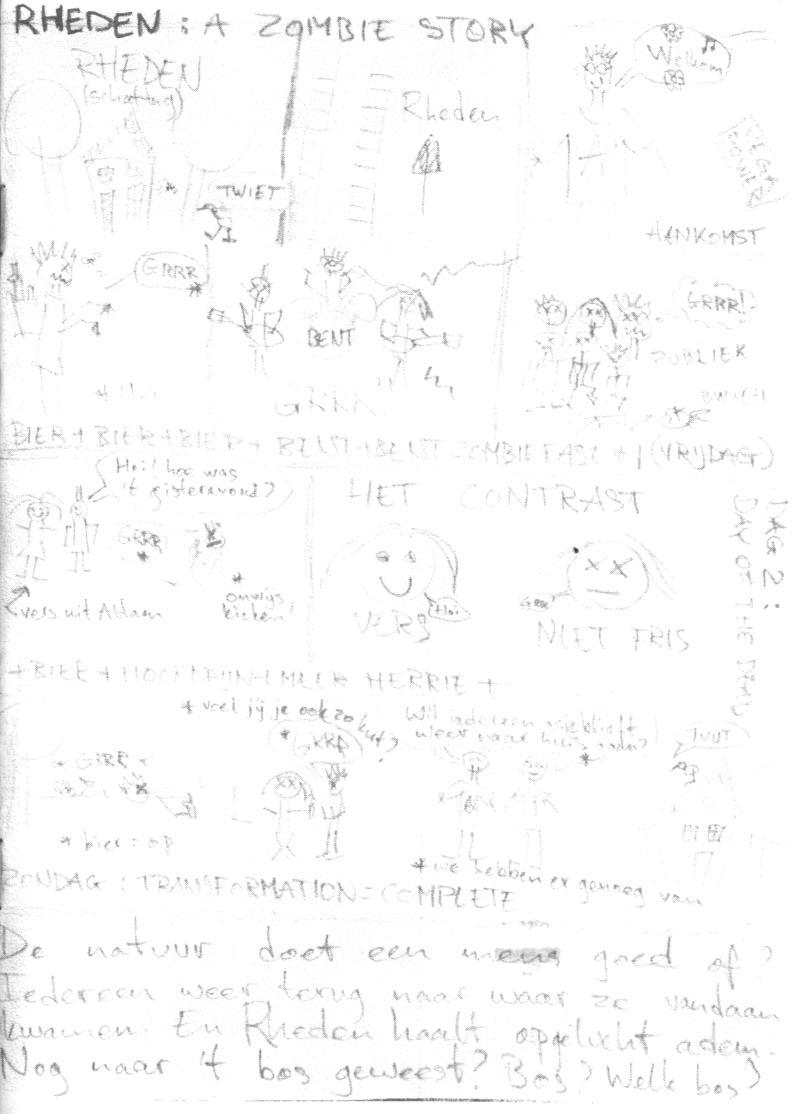 RHEDEN : A ZOMBIE STORY
RHEDEN
(schattig)
TWIET
Rheden
Welkom
AANKOMST
GRRR
*
BENT
GRRR
GRRR!
PUBLIEK
BIER + BIER + BIER + BENT + BENT ZOMBIEFASE * 1 (VRIJDAG)
Hoi! hoe was
't gisteravond?
GRRR
*
vers uit A'dam
*
onwijs
kicken!
HET CONTRAST
VERS
Hoi
GRR
NIET FRIS
DAG 2:
DAY OF THE DEAD
+ BIER + HOOFDPIJN + MEER HERRIE +
* GRRR *
* bier = op
* voel jij je ook zo kut?
* GRRR
Wil iedereen asjeblieft
weer naar huis gaan?
*
* we hebben er genoeg van
TUUT
ZONDAG : TRANSFORMATION = COMPLETE
De natuur doet een mens goed of?
Iedereen weer terug naar waar ze vandaan
kwamen. En Rheden haalt opgelucht adem.
Nog naar 't bos geweest? Bos? Welk bos?